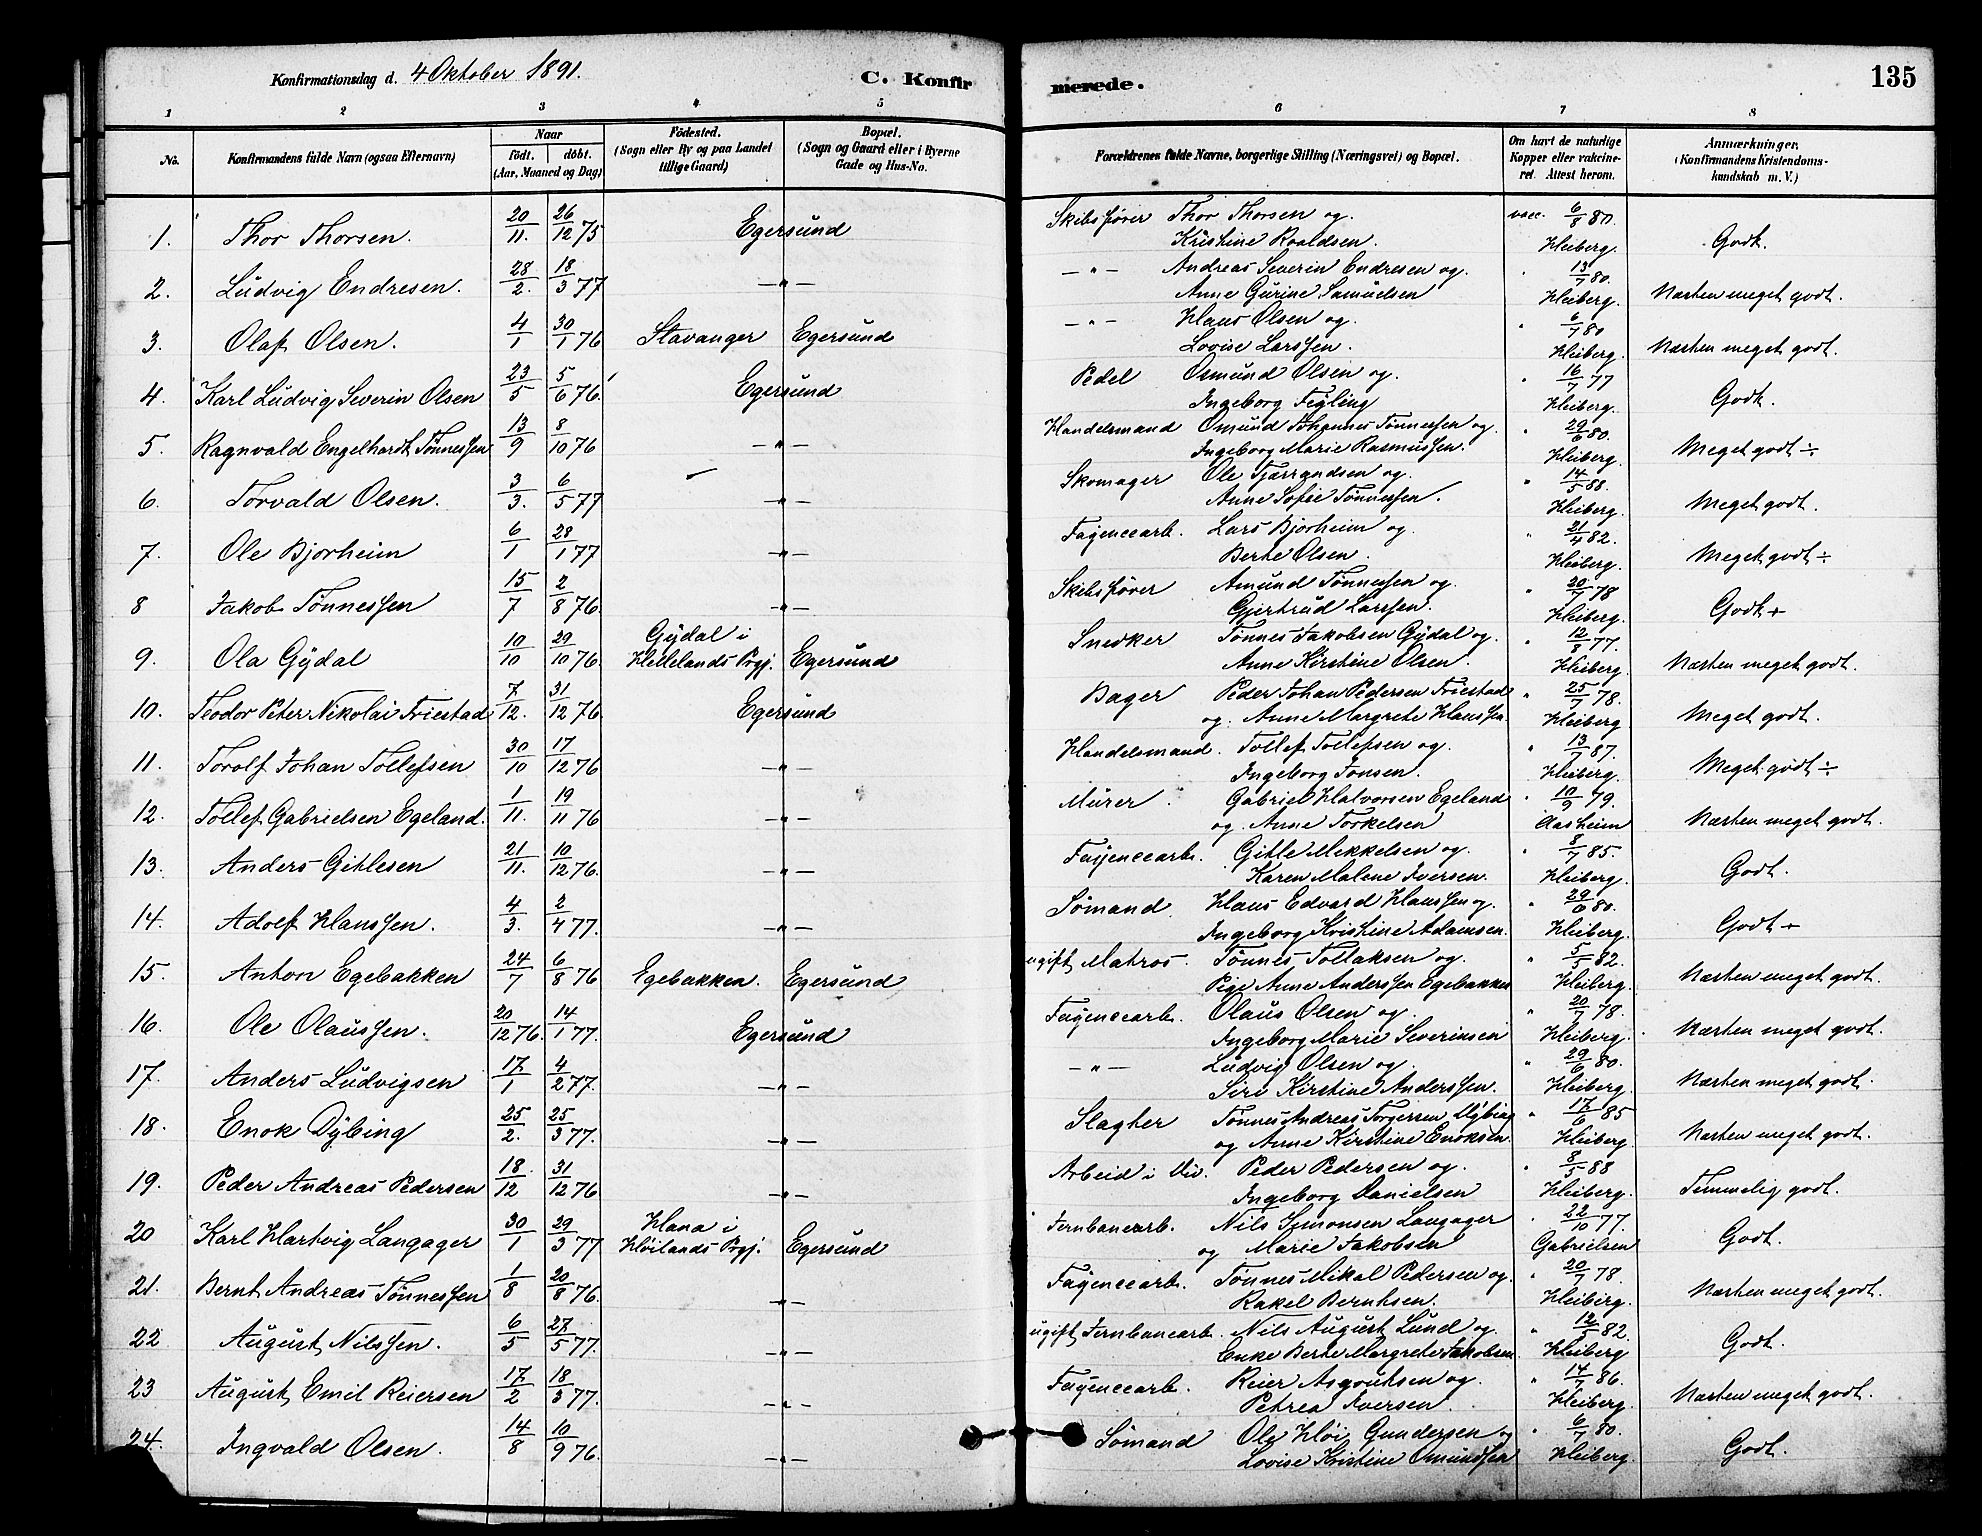 Konfirmationsdag d. 4 Oktober 1891.
C. Konfirmerede.
135
1 2 3 4 5 6 7 8
No.
Konfirmandens fulde Navn (ogsaa Efternavn)
Naar
født. døbt.
(Aar, Maaned og Dag)
Fødested.
(Sogn eller By og paa Landet
tillige Gaard)
Bopæl.
(Sogn og Gaard eller i Byerne
Gade og Hus-No.
Forældrenes fulde Navne, borgerlige Stilling (Næringsvei) og Bopæl.
Om havt de naturlige
Kopper eller vakcine-
ret. Attest herom.
Anmærkninger,
(Konfirmandens Kristendoms-
kundskab m. V.)
1. Thor Thorsen. 20/11. 26/12 75 Egersund Skibsfører Thor Thorsen og vacc. 6/8 80.
Kristine Roaldsen. Heiberg. Godt.
2. Ludvig Endresen. 28/2. 18/3 77 —„— —„— Andreas Severin Endresen og 13/7 80.
Anne Gurine Samuelsen Heiberg. Næsten meget godt.
3. Olaf Olsen. 4/1 30/1 76 Stavanger Egersund —„— Hans Olsen og „ 6/7 80
Lovise Larssen. Heiberg. Næsten meget godt.
4. Karl Ludvig Severin Olsen 23/5 5/6 76. Egersund Pedel Osmund Olsen og „ 16/7 77
Ingeborg Feyling Heiberg. Godt.
5. Ragnvald Engelhardt Tønnessen 13/9 8/10 76 —„— Handelsmand Omund Johannes Tønnessen og „ 29/6 80.
Ingeborg Marie Rasmussen. Heiberg. Meget godt ÷
6. Torvald Olsen. 3/3. 6/5 77 —„— Skomager Ole Tjerrandsen og „ 14/5 88.
Anne Sofie Tønnessen. Heiberg. Meget godt.
7. Ole Bjorheim 6/1 28/1 77 —„— Fayencearb. Lars Bjorheim og „ 21/4 82.
Berte Olsen. Heiberg. Meget godt ÷
8 Jakob Tønnessen 15/7 2/8 76. —„— Skibsfører Amund Tønnessen og „ 20/7 78
Gjertrud Larssen. Heiberg. Godt +
9. Ola Gydal 10/10 29/10 76. Gydal i
Hellelands Prgj. Egersund Snedker Tønnes Jakobsen Gydal og „ 12/8 77.
Anne Kirstine Olsen. Heiberg. Næsten meget godt.
10. Teodor Peter Nikolai Friestad 7/12. 31/12 76 Egersund Bager Peder Johan Pedersen Friestad „ 25/7 78.
og Anne Margrete Hanssen Heiberg Meget godt.
11. Torolf Johan Tollefsen 30/10 17/12 76 —„— Handelsmand. Tollef Tollefsen og „ 13/7 87.
Ingeborg Jonsen. Heiberg. Meget godt ÷
12. Tollef Gabrielsen Egeland. 1/11. 19/11 76 —„— Murer. Gabriel Halvorsen Egeland „ 10/9 79.
og Anne Torkelsen Aasheim Næsten meget godt.
13. Anders Gitlesen 21/11. 10/12 76. —„— Fayencearb. Gitle Mikkelsen og „ 8/7 85.
Karen Malene Iversen. Heiberg. Godt.
14. Adolf Hanssen. 4/3. 2/4 77. —„— Sømand Hans Edvard Hanssen og „ 29/6 80.
Ingeborg Kristine Adamsen. Heiberg. Godt +
15. Anton Egebakken 24/7 6/8 76 Egebakken. Egersund ugift Matros. Tønnes Tollaksen og „ 5/5 82.
Pige Anne Anderssen Egebakken Heiberg. Næsten meget godt.
16. Ole Olaussen. 20/12 76. 14/1 77. Egersund Fayencearb. Olaus Olsen og „ 20/7 78.
Ingeborg Marie Severinsen Heiberg. Næsten meget godt.
17. Anders Ludvigsen 17/1 4/2 77. —„— —„— Ludvig Olsen og „ 29/6 80.
Siri Kirstine Anderssen. Heiberg. Næsten meget godt.
18. Enok Dybing 25/2. 25/3 77. —„— Slagter Tønnes Andreas Torgersen Dybing „ 17/6 85
og Anne Kirstine Enoksen. Heiberg Næsten meget godt.
19. Peder Andreas Pedersen 18/12 31/12 76 —„— Arbeid i Div. Peder Pedersen og „ 8/5 88
Ingeborg Danielsen Heiberg. Temmelig godt.
20 Karl Hartvig Langager 30/1 29/3 77 Hana i
Høilands Prgj. Egersund Jernbanearb. Nils Simonsen Langager „ 22/10 77.
og Marie Jakobsen Gabrielsen Godt.
21. Bernt Andreas Tønnessen 1/8 20/8 76. —„— Fayencearb. Tønnes Mikal Pedersen og „ 20/7 78.
Rakel Berntsen. Heiberg. Næsten meget godt.
22 August Nilssen. 6/5 27/5 77. —„— ugift Jernbanearb. Nils August Lund og „ 12/5 82.
Enke Berte Margrete Jakobsen Heiberg Godt.
23 August Emil Reiersen 17/2 18/3 77. —„— Fayencearb. Reier Asgoutsen og „ 14/7 86.
Petrea Iversen. Heiberg. Næsten meget godt.
24. Ingvald Olsen. 14/8 10/9 76. —„— Sømand Ole Høi Gundersen og „ 6/7 80.
Lovise Kristine Omundsen Heiberg. Godt.